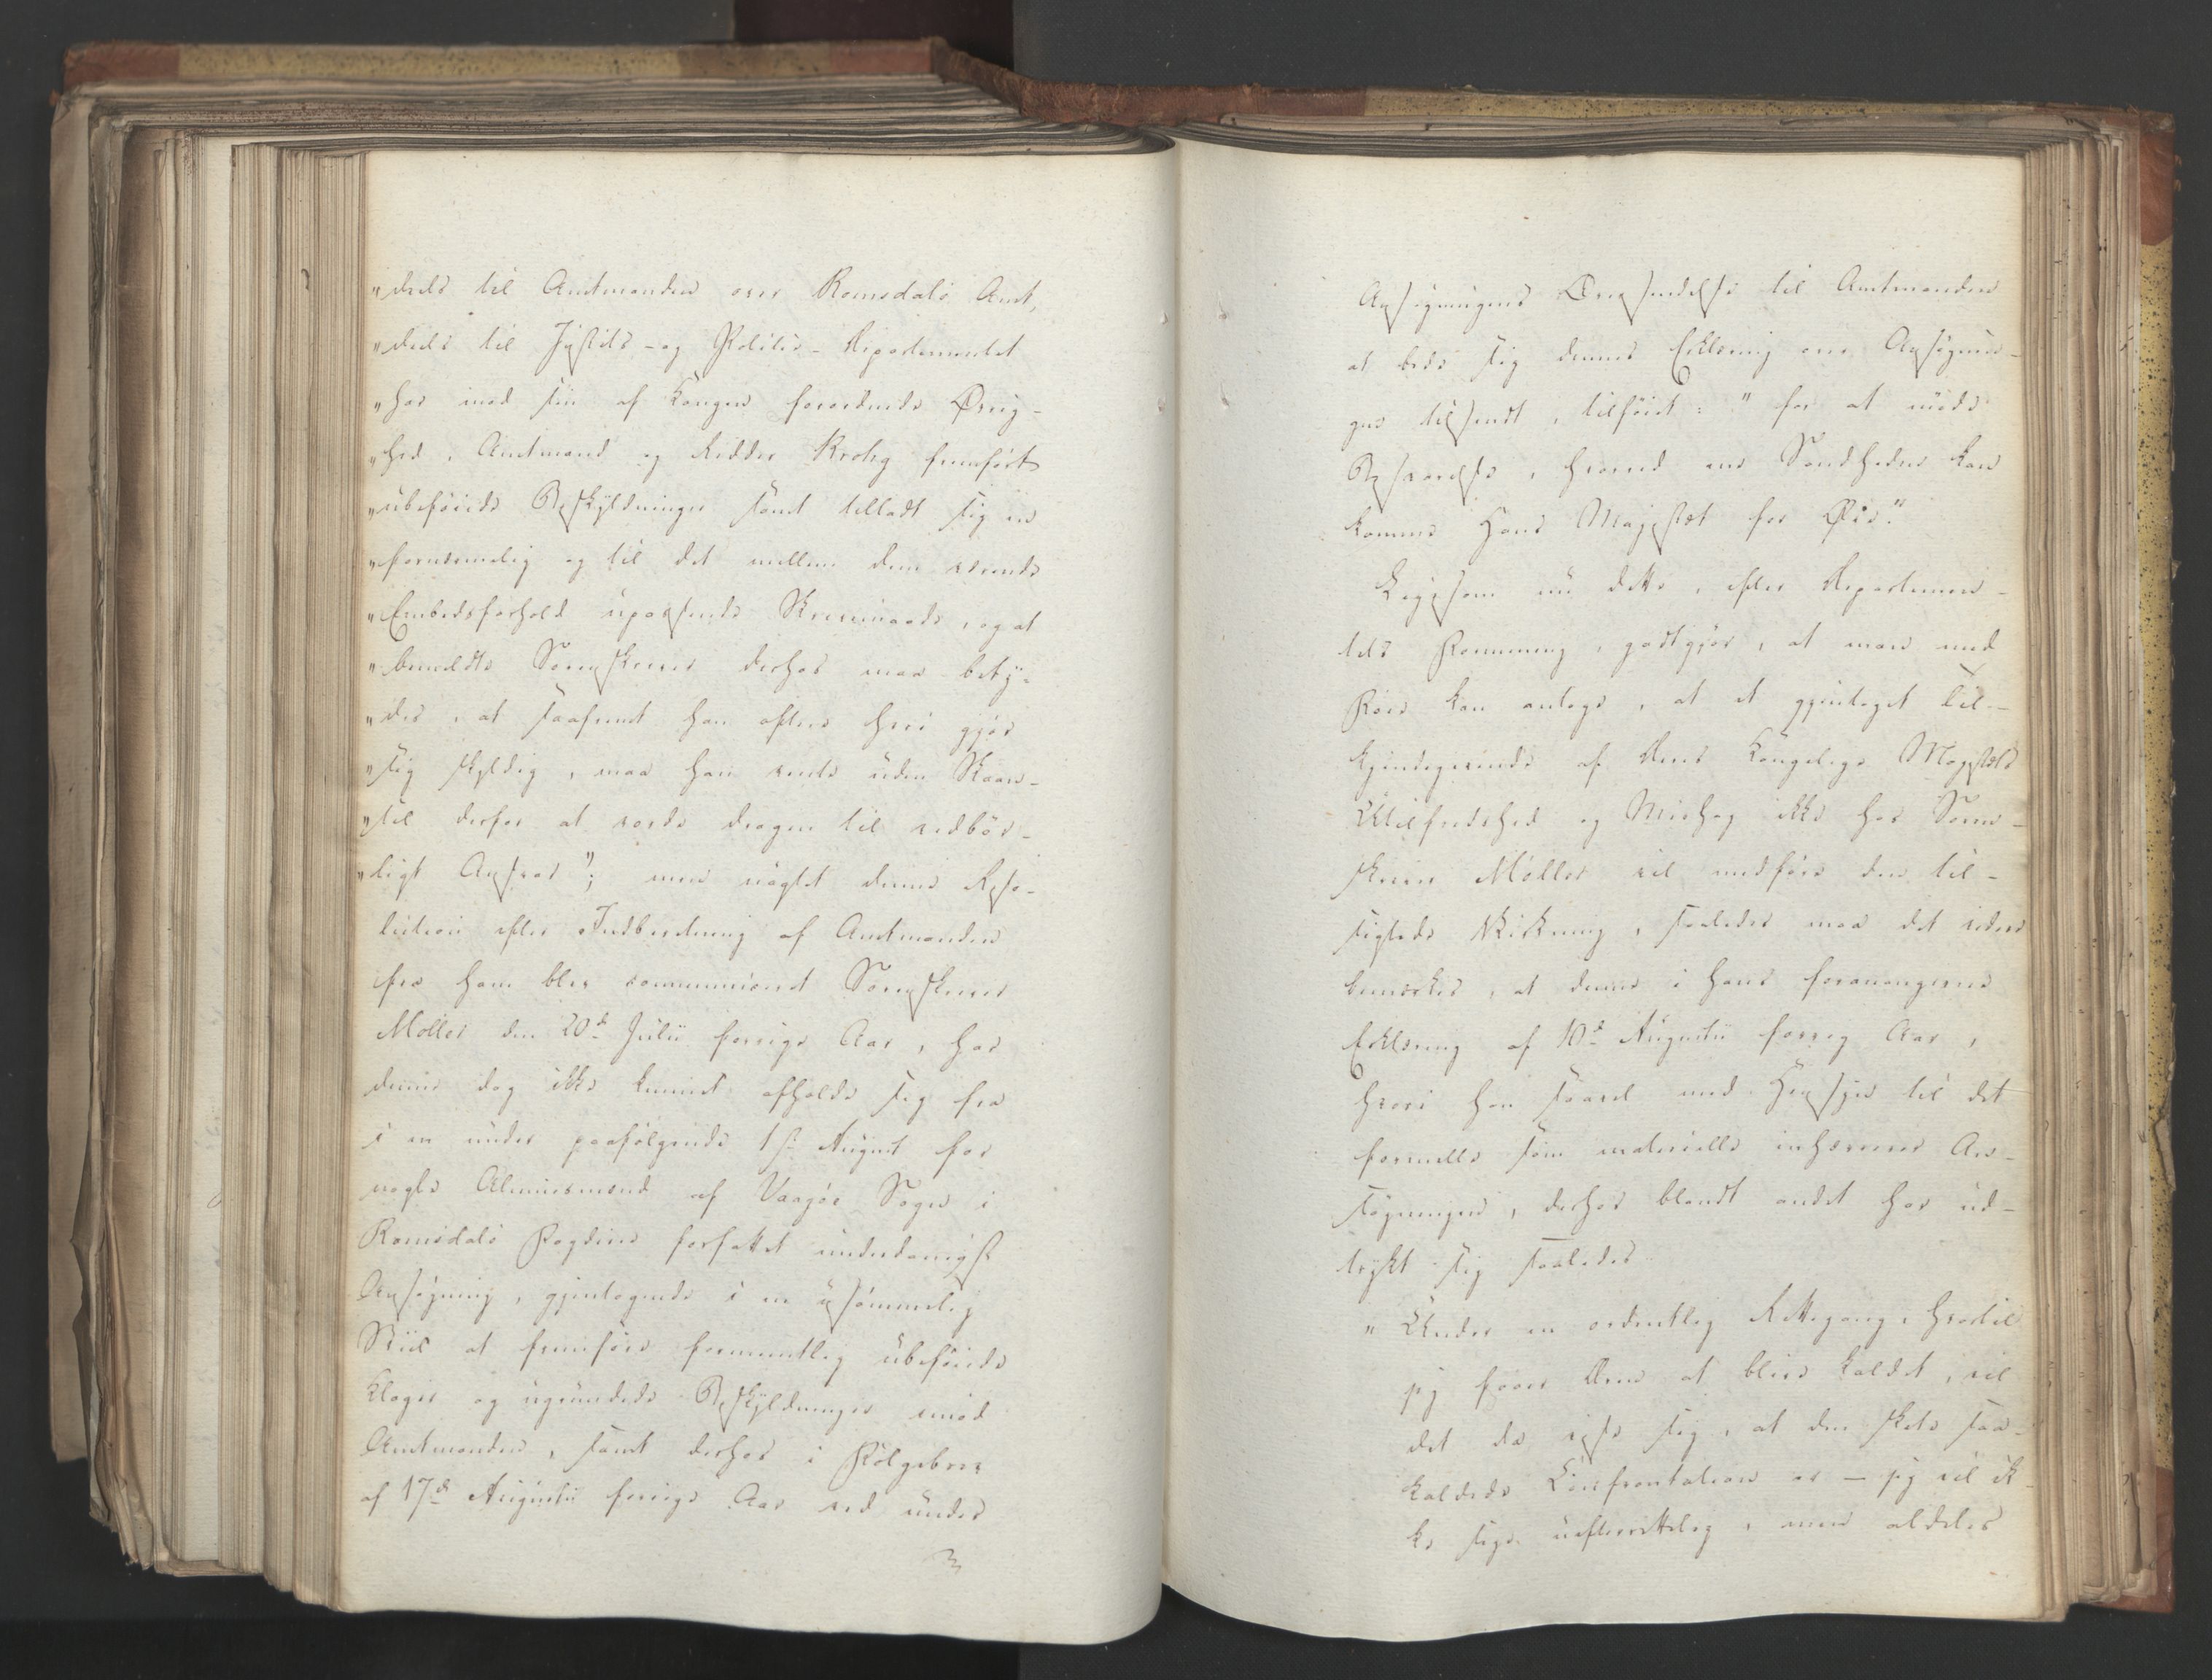 "deels til Amtmanden over Romsdals Amt,
"deels til Justits- og Politie-Departementet
"har mod sin af Kongen forordnede Øvrig-
"hed, Amtmand og Ridder Krohg fremført
"ubeføiede Beskyldninger samt tilladt sig en
"fornærmelig og til det mellem dem værende
"Embedsforhold upassende Skrivemaade, og at
"bemeldte Sorenskriver derhos maa bety-
"des, at saafremt han oftere heri gjør
"sig skyldig, maa han vente uden Skaan-
"sel derfor at vorde dragen til vedbør-
"ligt Ansvar"; men uagtet denne Reso-
lution efter Indberetning af Amtmanden
fra ham blev communiceret Sorenskriver
Møller den 20de Julii forrige Aar, har
denne dog ikke kunnet afholde sig fra
i en under paafølgende 1ste August for
nogle Almuesmænd af Vaagøe Sogn i
Romsdals Fogderie forfattet underdanigst
Ansøgning, gjentagende i en usømmelig
Stiil at fremføre formeentlig ubeføiede
Klager og ugrundede Beskyldninger imod
Amtmanden, samt derhos i Følgebrev
af 17de Augustii forrige Aar ved under
Ansøgningens Oversendelse til Amtmanden
at bede sig dennes Erklæring over Ansøgnin-
gen tilsendt, tilføiet: "for at møde
Besvarelse, hvorved een Sandheden kan
komme Hans Majestæt for Øie."
Ligesom nu dette, efter Departemen-
tets Formening, godtgjør, at man med
Føie kan antage, at et gjentaget Til-
kjendegivende af Deres Kongelige Majestæts
Utilfredshed og Mishag ikke hos Soren-
skriver Møller vil medføre den til-
sigtede Virkning, saaledes maa det videre
bemærkes, at denne i hans foranangivne
Erklæring af 10de Augustii forrig Aar,
hvori han saavel med Hensyn til det
formelle som materielle inhærerer An-
søgningen, derhos blandt andet har ud-
trykt sig saaledes
"Under en ordentlig Rettegang, hvortil
jeg troer Dem at blive kaldet, vil
det da vise sig, at den skete saa-
kaldede Confrontation er — jeg vil ik-
ke sige uefterrettelig, men aldeles